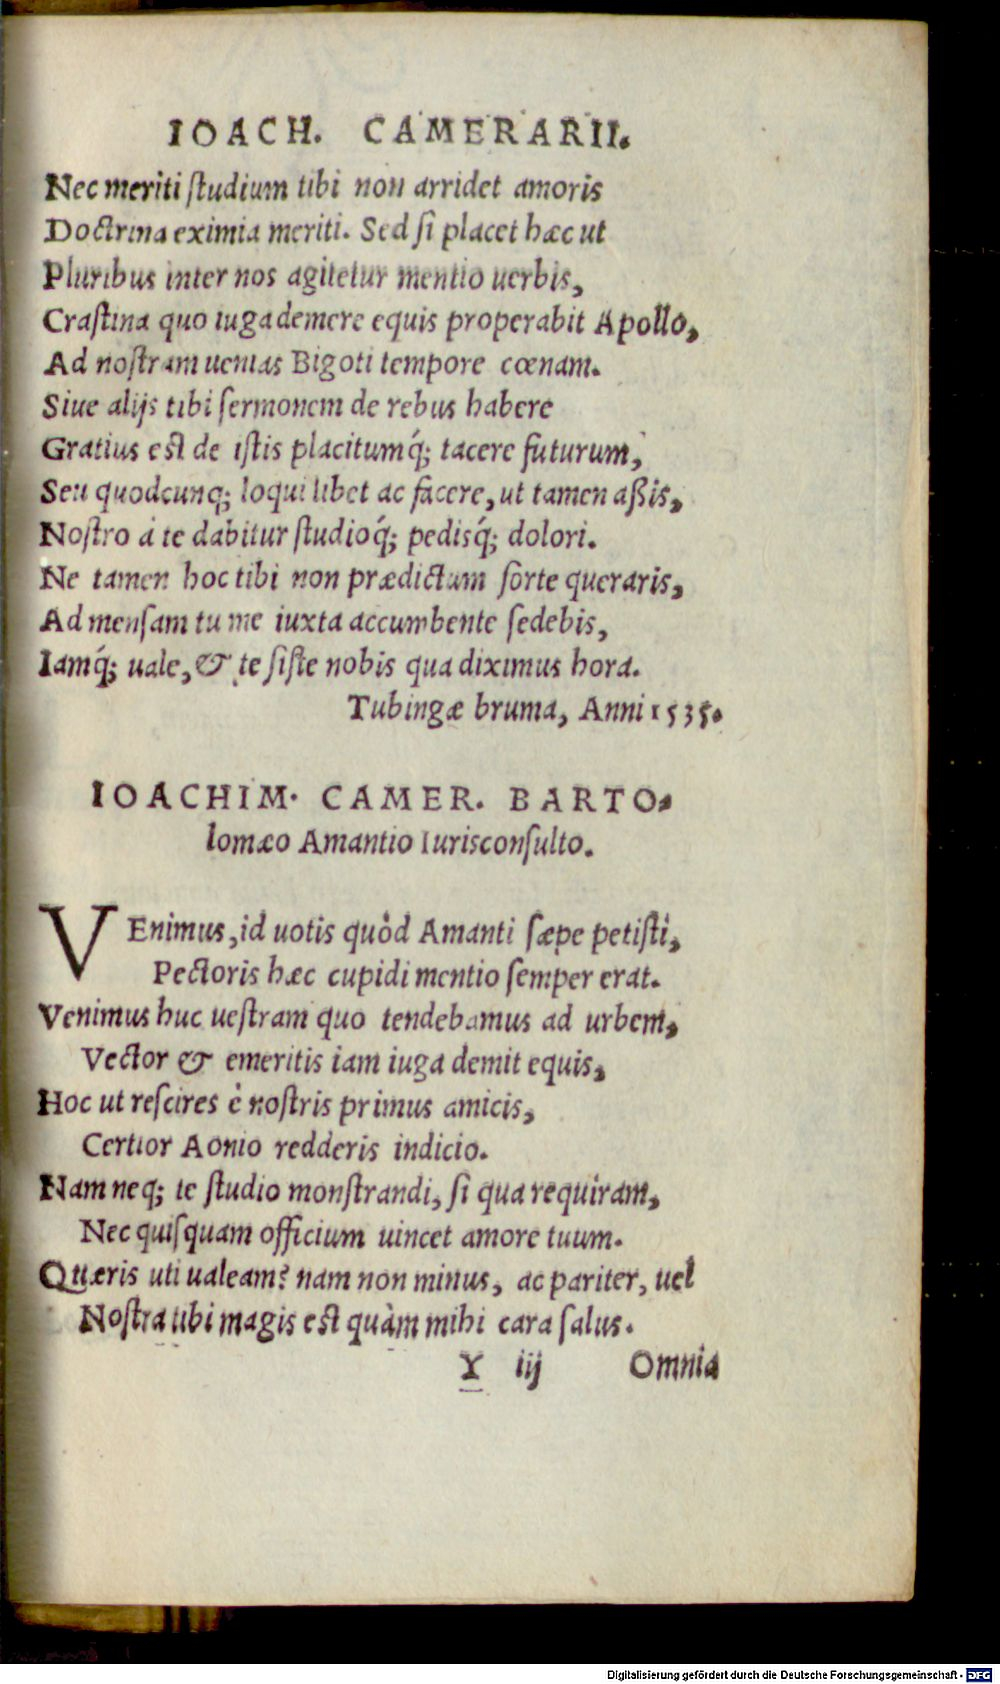 IOACH. CAMERARII.
Nec meriti ſtudium tibi non arridet amoris
Doctrina eximia meriti. Sed ſi placet hæc ut
Pluribus inter nos agitetur mentio uerbis,
Craſtina quo iuga demere equis properabit Apollo,
Ad noſtram uenias Bigoti tempore cœnam.
Siue alijs tibi ſermonem de rebus habere
Gratius eſt de iſtis placitumq́; tacere futurum,
Seu quodcunq; loqui libet ac facere, ut tamen aßis,
Noſtro à te dabitur ſtudioq́; pedisq́; dolori.
Ne tamen hoc tibi non prædictum forte queraris,
Ad menſam tu me iuxta accumbente ſedebis,
Iamq́; uale, & te ſiſte nobis qua diximus hora.
Tubingæ bruma, Anni 1535.
IOACHIM. CAMER. BARTO-
lomæo Amantio Iurisconſulto.
VEnimus, id uotis quòd Amanti ſæpe petiſti,
Pectoris hæc cupidi mentio ſemper erat.
Venimus huc ueſtram quo tendebamus ad urbem,
Vector & emeritis iam iuga demit equis,
Hoc ut reſcires è noſtris primus amicis,
Certior Aonio redderis indicio.
Nam neq; te ſtudio monſtrandi, ſi qua requiram,
Nec quiſquam officium uincet amore tuum.
Quæris uti ualeam? nam non minus, ac pariter, uel
Noſtra tibi magis eſt quàm mihi cara ſalus.
Y iij Omnia
Digitalisierung gefördert durch die Deutsche Forschungsgemeinschaft - DFG